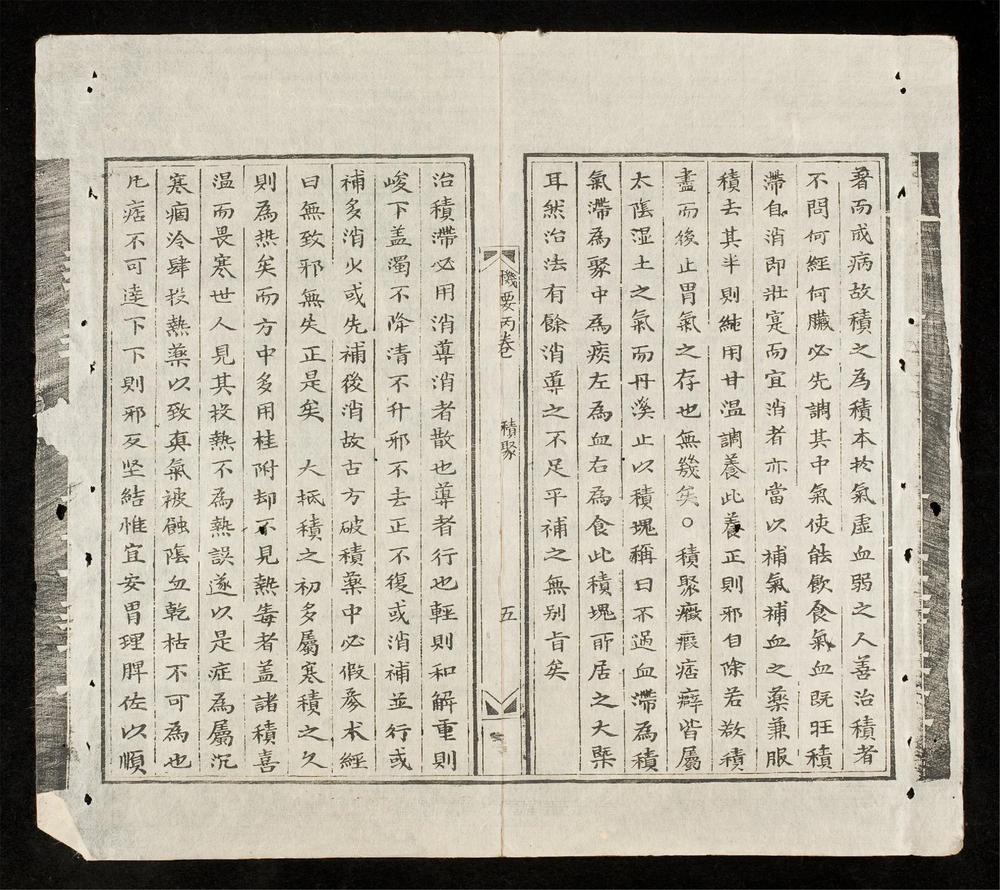 著而成病故積之為積本扵氣虚血弱之人善治積者
不問何經何臟必先調其中氣使能飲食氣血既旺積
滯自消即壯寔而宜消者亦當以補氣補血之藥兼服
積去其半則純用甘温調養此養正則邪自除若欲積
盡而後止胃氣之存也無幾矣○積聚癥瘕痞癖皆屬
太陰湿土之氣而丹溪止以積塊稱曰不過血滯為積
氣滯為聚中為痰左為血右為食此積塊所居之大槩
耳然治法有餘消導之不足平補之無别旨矣
機要丙卷
積聚
五
治積滯必用消導消者散也導者行也輕則和解重則
峻下盖濁不降清不升邪不去正不復或消補並行或
補多消少或先補後消故古方破積藥中必假參术經
曰無致邪無失正是矣 大抵積之初多屬寒積之久
則為热矣而方中多用桂附却不見熱毒者盖諸積喜
温而畏寒世人見其投熱不為熱誤遂以是症為屬沉
寒痼冷肆投熱藥以致真氣被蝕陰血乾枯不可為也
凡痞不可達下下則邪反坚結惟宜安胃理脾佐以順